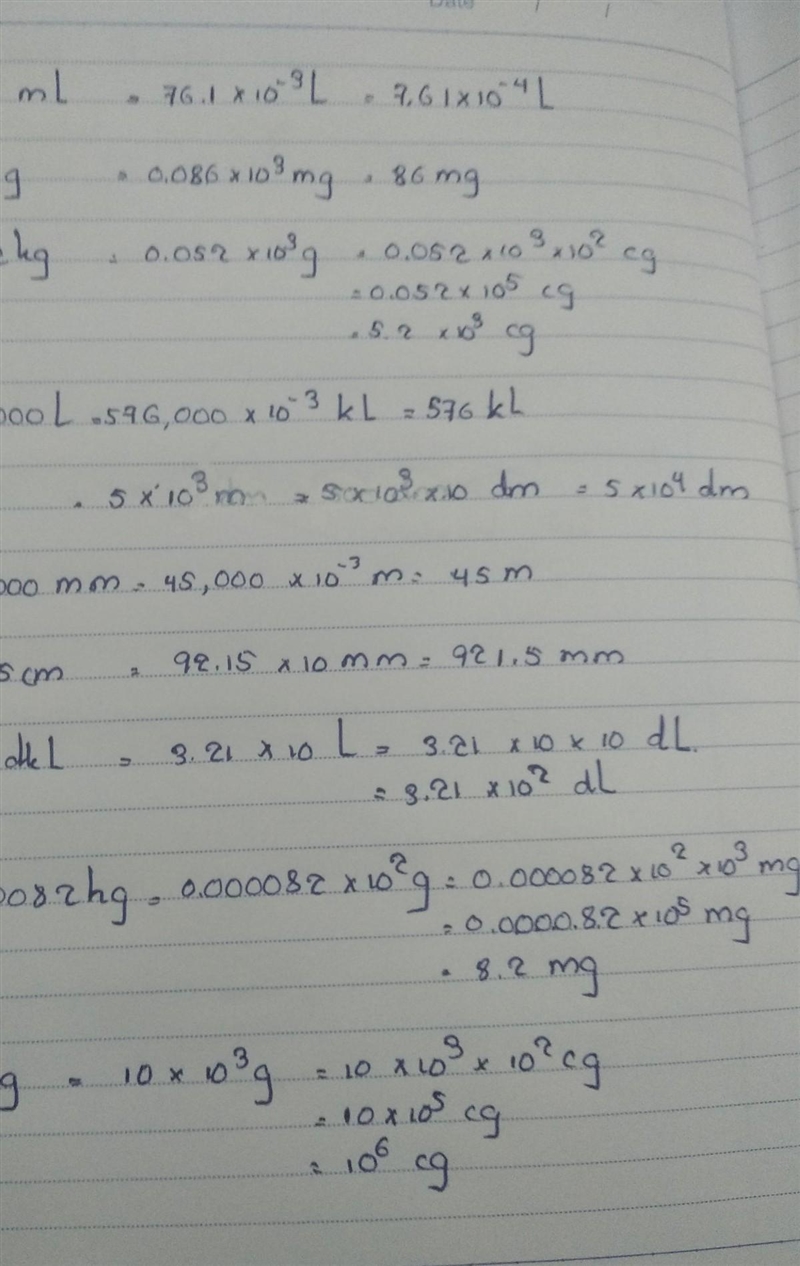 Date / /
mL = 76.1 × 10⁻³ L = 7.61 × 10⁻⁴ L
g = 0.086 × 10³ mg = 86 mg
kg = 0.052 × 10³ g = 0.052 × 10³ × 10² cg
= 0.052 × 10⁵ cg
= 5.2 × 10³ cg
000 L = 576,000 × 10⁻³ kL = 576 kL
= 5 × 10³ m = 5 × 10³ × 10 dm = 5 × 10⁴ dm
000 mm = 45,000 × 10⁻³ m = 45 m
5 cm = 92.15 × 10 mm = 921.5 mm
dkL = 3.21 × 10 L = 3.21 × 10 × 10 dL
= 3.21 × 10² dL
0082 hg = 0.000082 × 10² g = 0.000082 × 10² × 10³ mg
= 0.000082 × 10⁵ mg
= 8.2 mg
g = 10 × 10³ g = 10 × 10³ × 10² cg
= 10 × 10⁵ cg
= 10⁶ cg